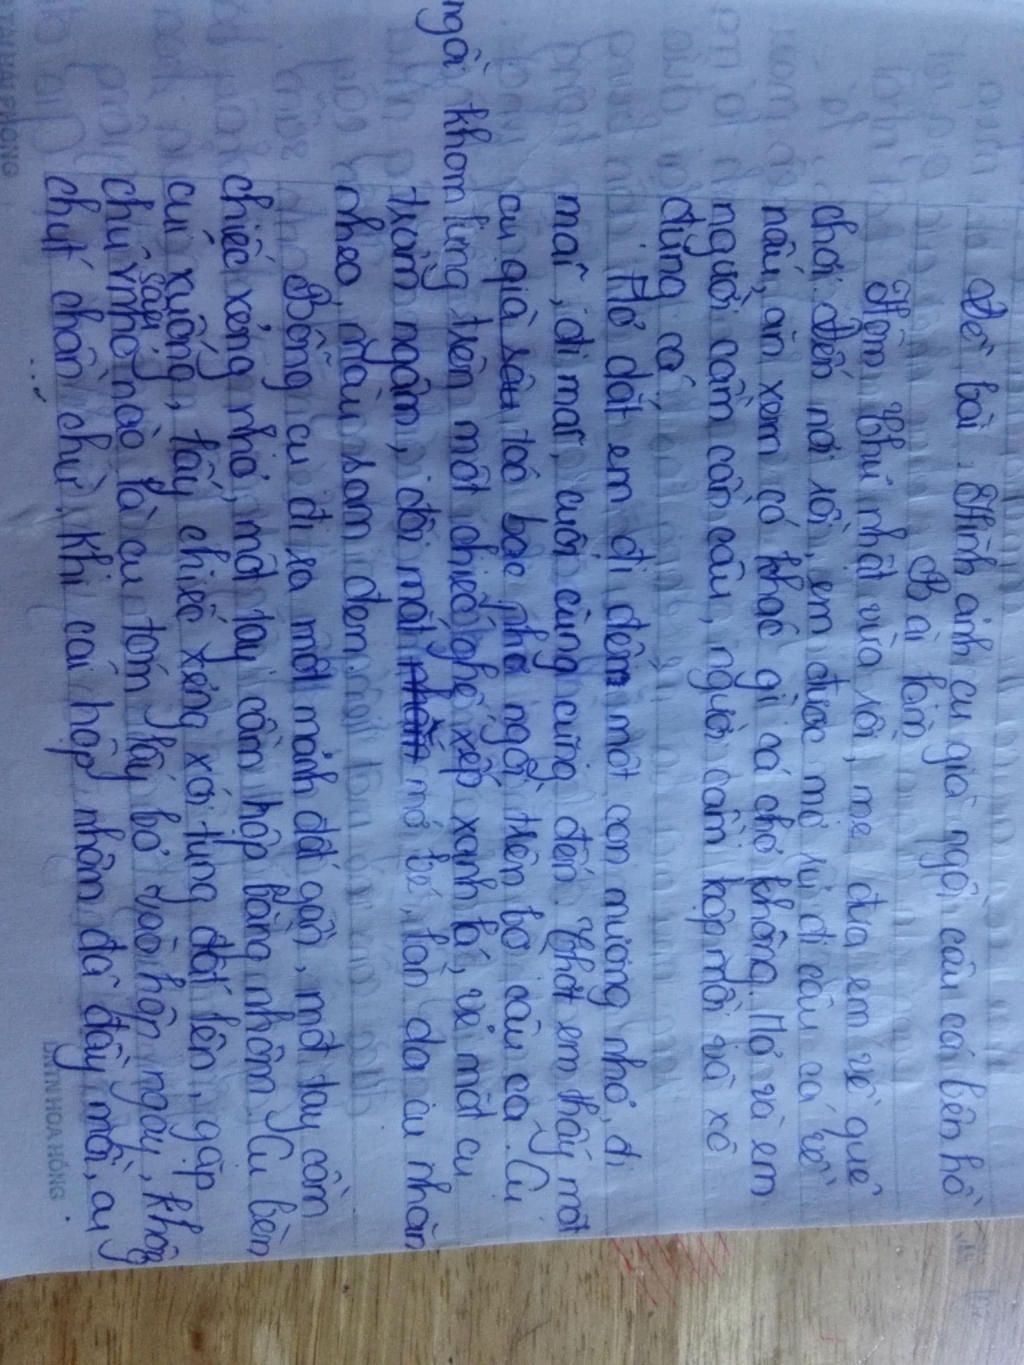 Đề bài: Hình ảnh cụ già ngồi câu cá bên hồ
Bài làm
Hôm thứ nhật vừa rồi, mẹ đưa em về quê
chơi. Đến nơi rồi, em được mợ rủ đi câu cá về
nấu, ăn xem có khác gì cá chợ không. Mợ và em
người cầm cần câu, người cầm hộp mồi và xô
đựng cá.
Mợ dắt em đi đến một con mương nhỏ, đi
mãi, đi mãi, cuối cùng cũng đến. Chợt em thấy một
cụ già râu tóc bạc phơ ngồi trên bờ câu cá. Cụ
ngồi khom lưng trên một chiếc ghế xếp xanh lá, vẻ mặt cụ
trầm ngâm, đôi mắt mở bé, làn da cụ nhăn
nheo, màu sam đen.
Bỗng cụ đi ra một mảnh đất gần, một tay cầm
chiếc xẻng nhỏ, một tay cầm hộp bằng nhôm. Cụ bèn
cúi xuống, lấy chiếc xẻng xới tung đất lên, gặp
chú giun nhỏ nào là cụ tóm lấy bỏ vào hộp ngay, không
chút chần chừ. Khi cái hộp nhôm đã đầy mồi, cụ
LIMTN HOA HỒNG